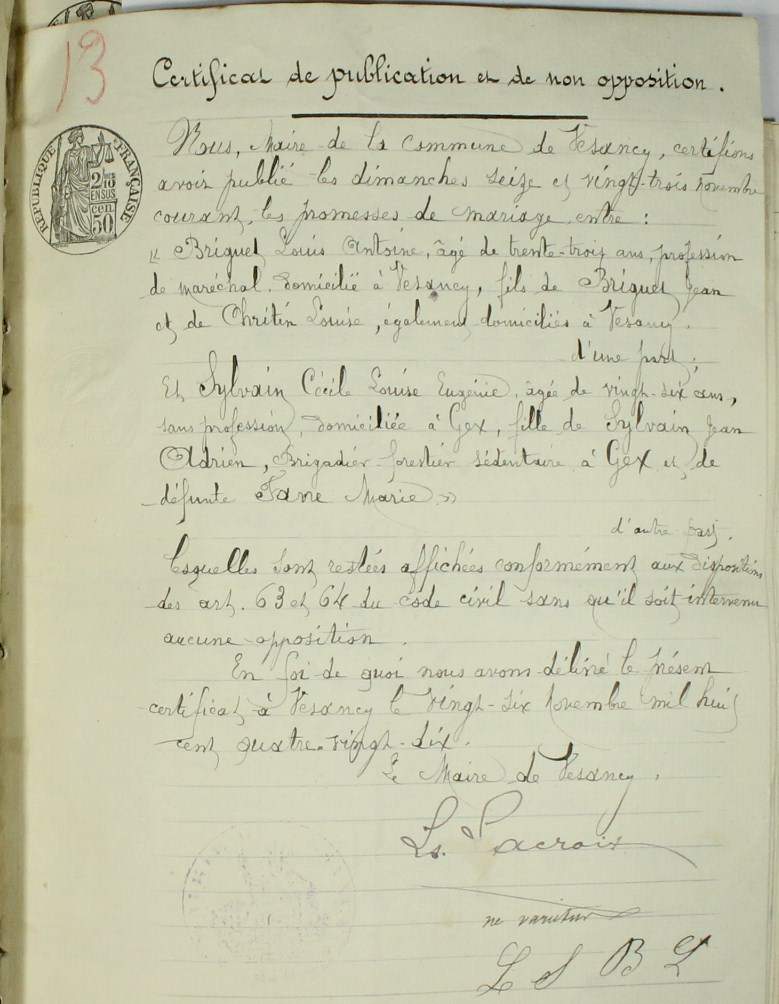 13
Certificat de publication et de non opposition.
RÉPUBLIQUE FRANÇAISE
2/10
EN SUS
cen
50
Nous, Maire de la commune de Vesancy, certifions
avoir publié les dimanches seize et vingt-trois novembre
courant, les promesses de mariage entre :
" Briquet Louis Antoine, âgé de trente-trois ans, profession
de maréchal, domicilié à Vesancy, fils de Briquet Jean
et de Chritin Louise, également domiciliés à Vesancy.
d'une part ;
Et Sylvain Cécile Louise Eugénie, âgée de vingt-six ans,
sans profession, domiciliée à Gex, fille de Sylvain Jean
Adrien, Brigadier forestier sédentaire à Gex et de
défunte Marie »
d'autre part.
Lesquelles sont restées affichées conformément aux dispositions
des art. 63 et 64 du code civil sans qu'il soit intervenu
aucune opposition.
En foi de quoi nous avons délivré le présent
certificat à Vesancy le vingt-six novembre mil huit
cent quatre-vingt-dix.
Le Maire de Vesancy.
Ls. Lacroix
ne varietur
L S B L